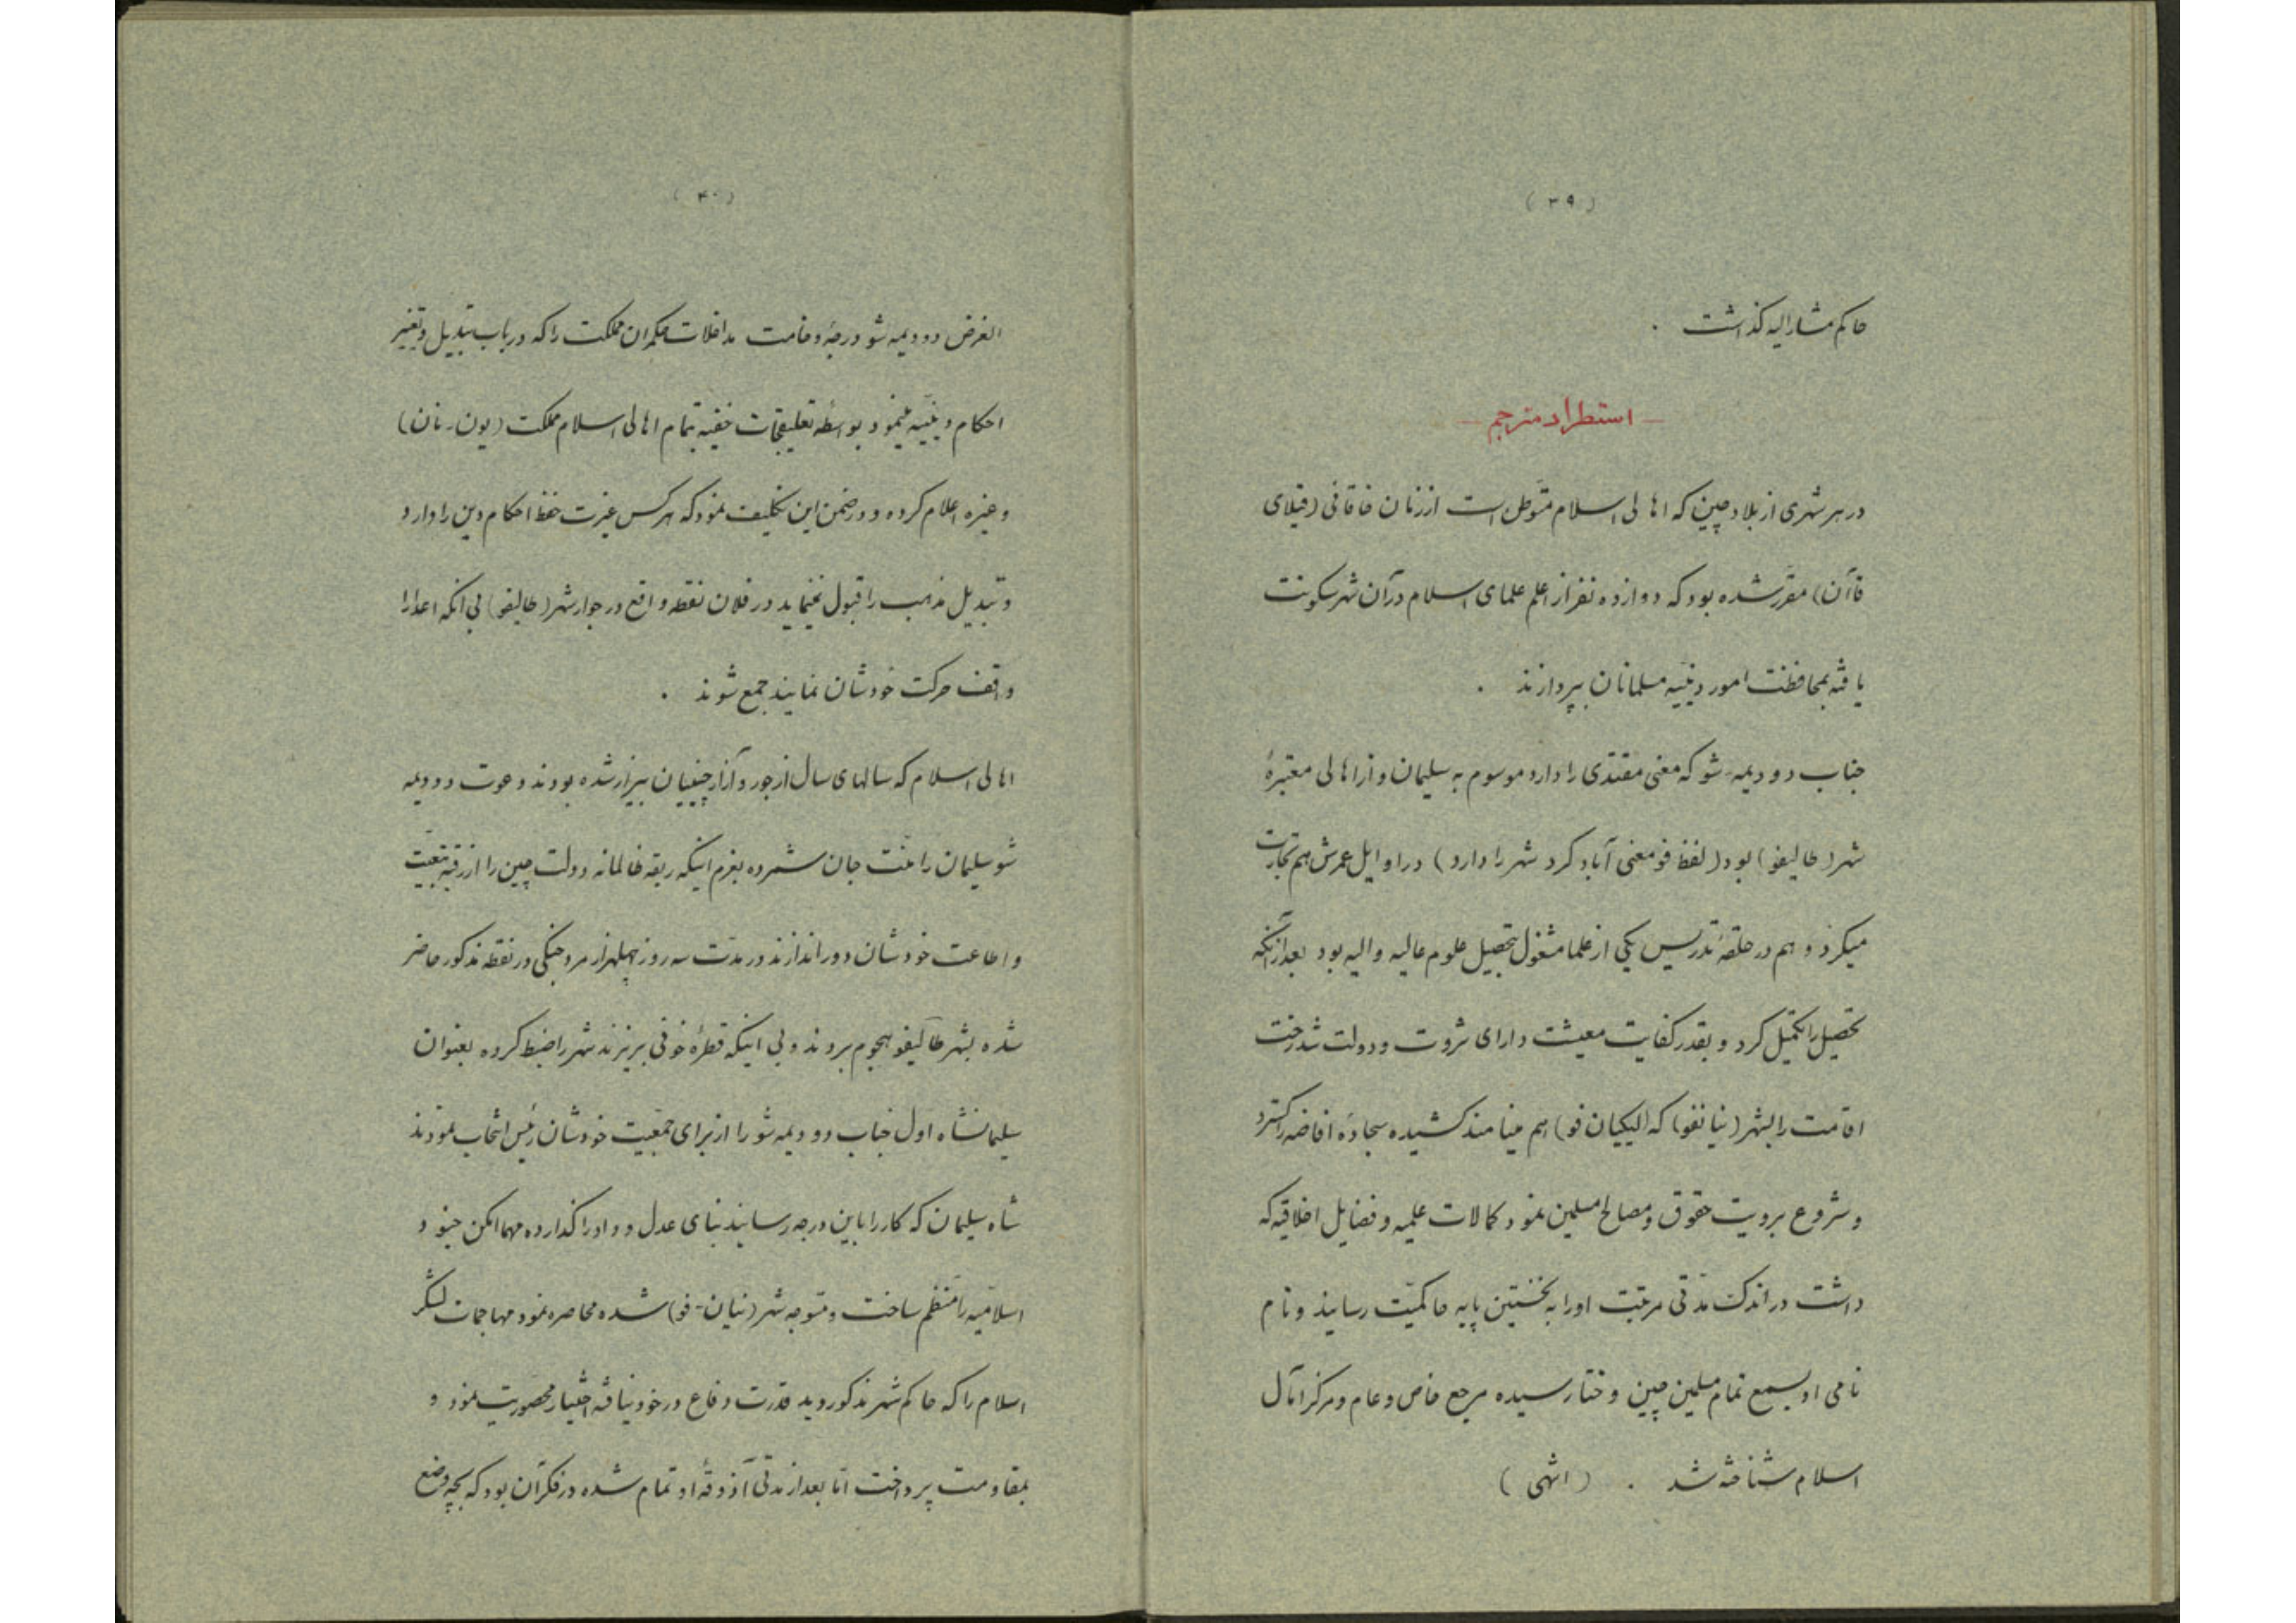 (۳۹)
حاکم مشارالیه گذاشت .
استطراد مترجم
در هر شهری از بلاد چین که اهالی اسلام متوطن است از زنان خاقانی (قیلای
قاآن) مقرر شده بود که دوازده نفر از اعلم علمای اسلام در آن شهر سکونت
یافته بمحافظت امور دینیه مسلمانان بپردازند .
جناب دودیمه-شو که معنی مقتدی را دارد موسوم به سلیمان و از اهالی معتبرهٔ
شهر (طالیفو) بود (لفظ فو معنی آباد کرد شهر را دارد) در اوایل عمرش هم تجارت
میکرد و هم در حلقهٔ تدریس یکی از علما مشغول تحصیل علوم عالیه و الیه بود بعد از آنکه
تحصیل را تکمیل کرد و بقدر کفایت معیشت دارای ثروت و دولت شد رخت
اقامت را بشهر (نیانفو) که (لیکیان فو) هم مینامند کشیده سجادهٔ افاضه را گسترد
و شروع برویت حقوق و مصالح مسلمین نمود کمالات علمیه و فضایل اخلاقیه که
داشت در اندک مدتی مرتبت او را به نخستین پایه حاکمیت رسانید و نام
نامی او بسمع تمام مسلمین چین و ختا رسیده مرجع خاص و عام و مرکز آمال
اسلام شناخته شد . (انتهی)
(۴۰)
الغرض دودیمه شو درجهٔ وخامت مداخلات حکمران مملکت را که در باب تبدیل و تغییر
احکام دینیه مینمود بواسطه تعلیقجات خفیه بتمام اهالی اسلام مملکت (یون-نان)
و غیره اعلام کرده و در ضمن این تکلیف نمود که هر کس غیرت حفظ احکام دین را دارد
و تبدیل مذهب را قبول نمینماید در فلان نقطه واقع در جوار شهر (طالیفو) بی آنکه اعدا را
واقف حرکت خودشان نمایند جمع شوند .
اهالی اسلام که سالهای سال از جور و آزار چینیان بیزار شده بودند دعوت دودیمه
شو سلیمان را منت جان شمرده بعزم اینکه ربقه ظالمانه دولت چین را از رقبه تبعیت
و اطاعت خودشان دور اندازند در مدت سه روز چهلهزار مرد جنگی در نقطه مذکور حاضر
شده بشهر طالیفو هجوم بردند و بی اینکه قطرهٔ خونی بریزند شهر را ضبط کرده بعنوان
سلیمانشاه اول جناب دودیمه شو را از برای جمعیت خودشان رئیس انتخاب نمودند
شاه سلیمان که کار را باین درجه رسانید بنای عدل و داد را گذارده مهما امکن جنود
اسلامیه را منظم ساخت و متوجه شهر (نیان-فو) شده محاصره نمود مهاجمات لشکر
اسلام را که حاکم شهر مذکور دید قدرت دفاع در خود نیافته اختیار محصوریت نمود و
بمقاومت پرداخت اما بعد از مدتی آذوقهٔ او تمام شده در فکر آن بود که بچه وضع